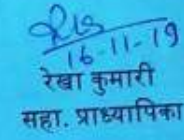 16-11-19
रेखा कुमारी
सहा. प्राध्यापिका